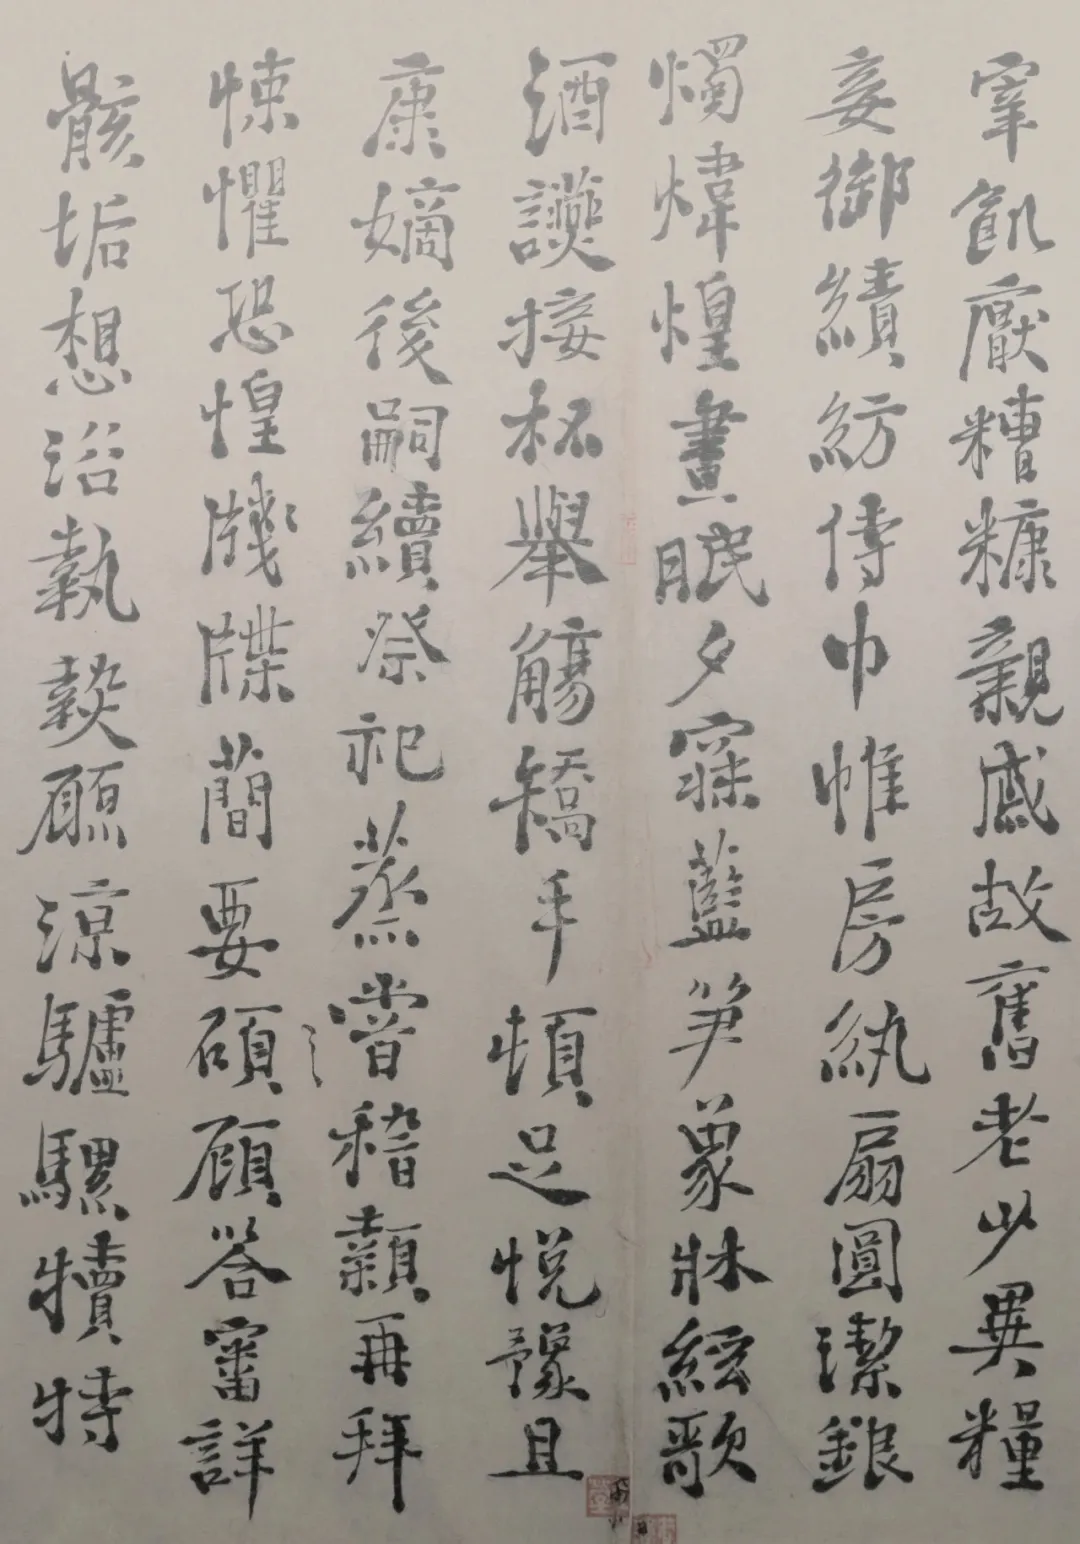 宰飢厭糟糠親戚故舊老少異糧
妾御績紡侍巾帷房紈扇圓潔銀
燭煒煌晝眠夕寐藍笋象牀絃歌
酒讌接杯舉觴矯手頓足悅豫且
康嫡後嗣續祭祀蒸嘗稽顙再拜
悚懼恐惶牋牒簡要顧答審詳
骸垢想浴執熱願涼驢騾犢特